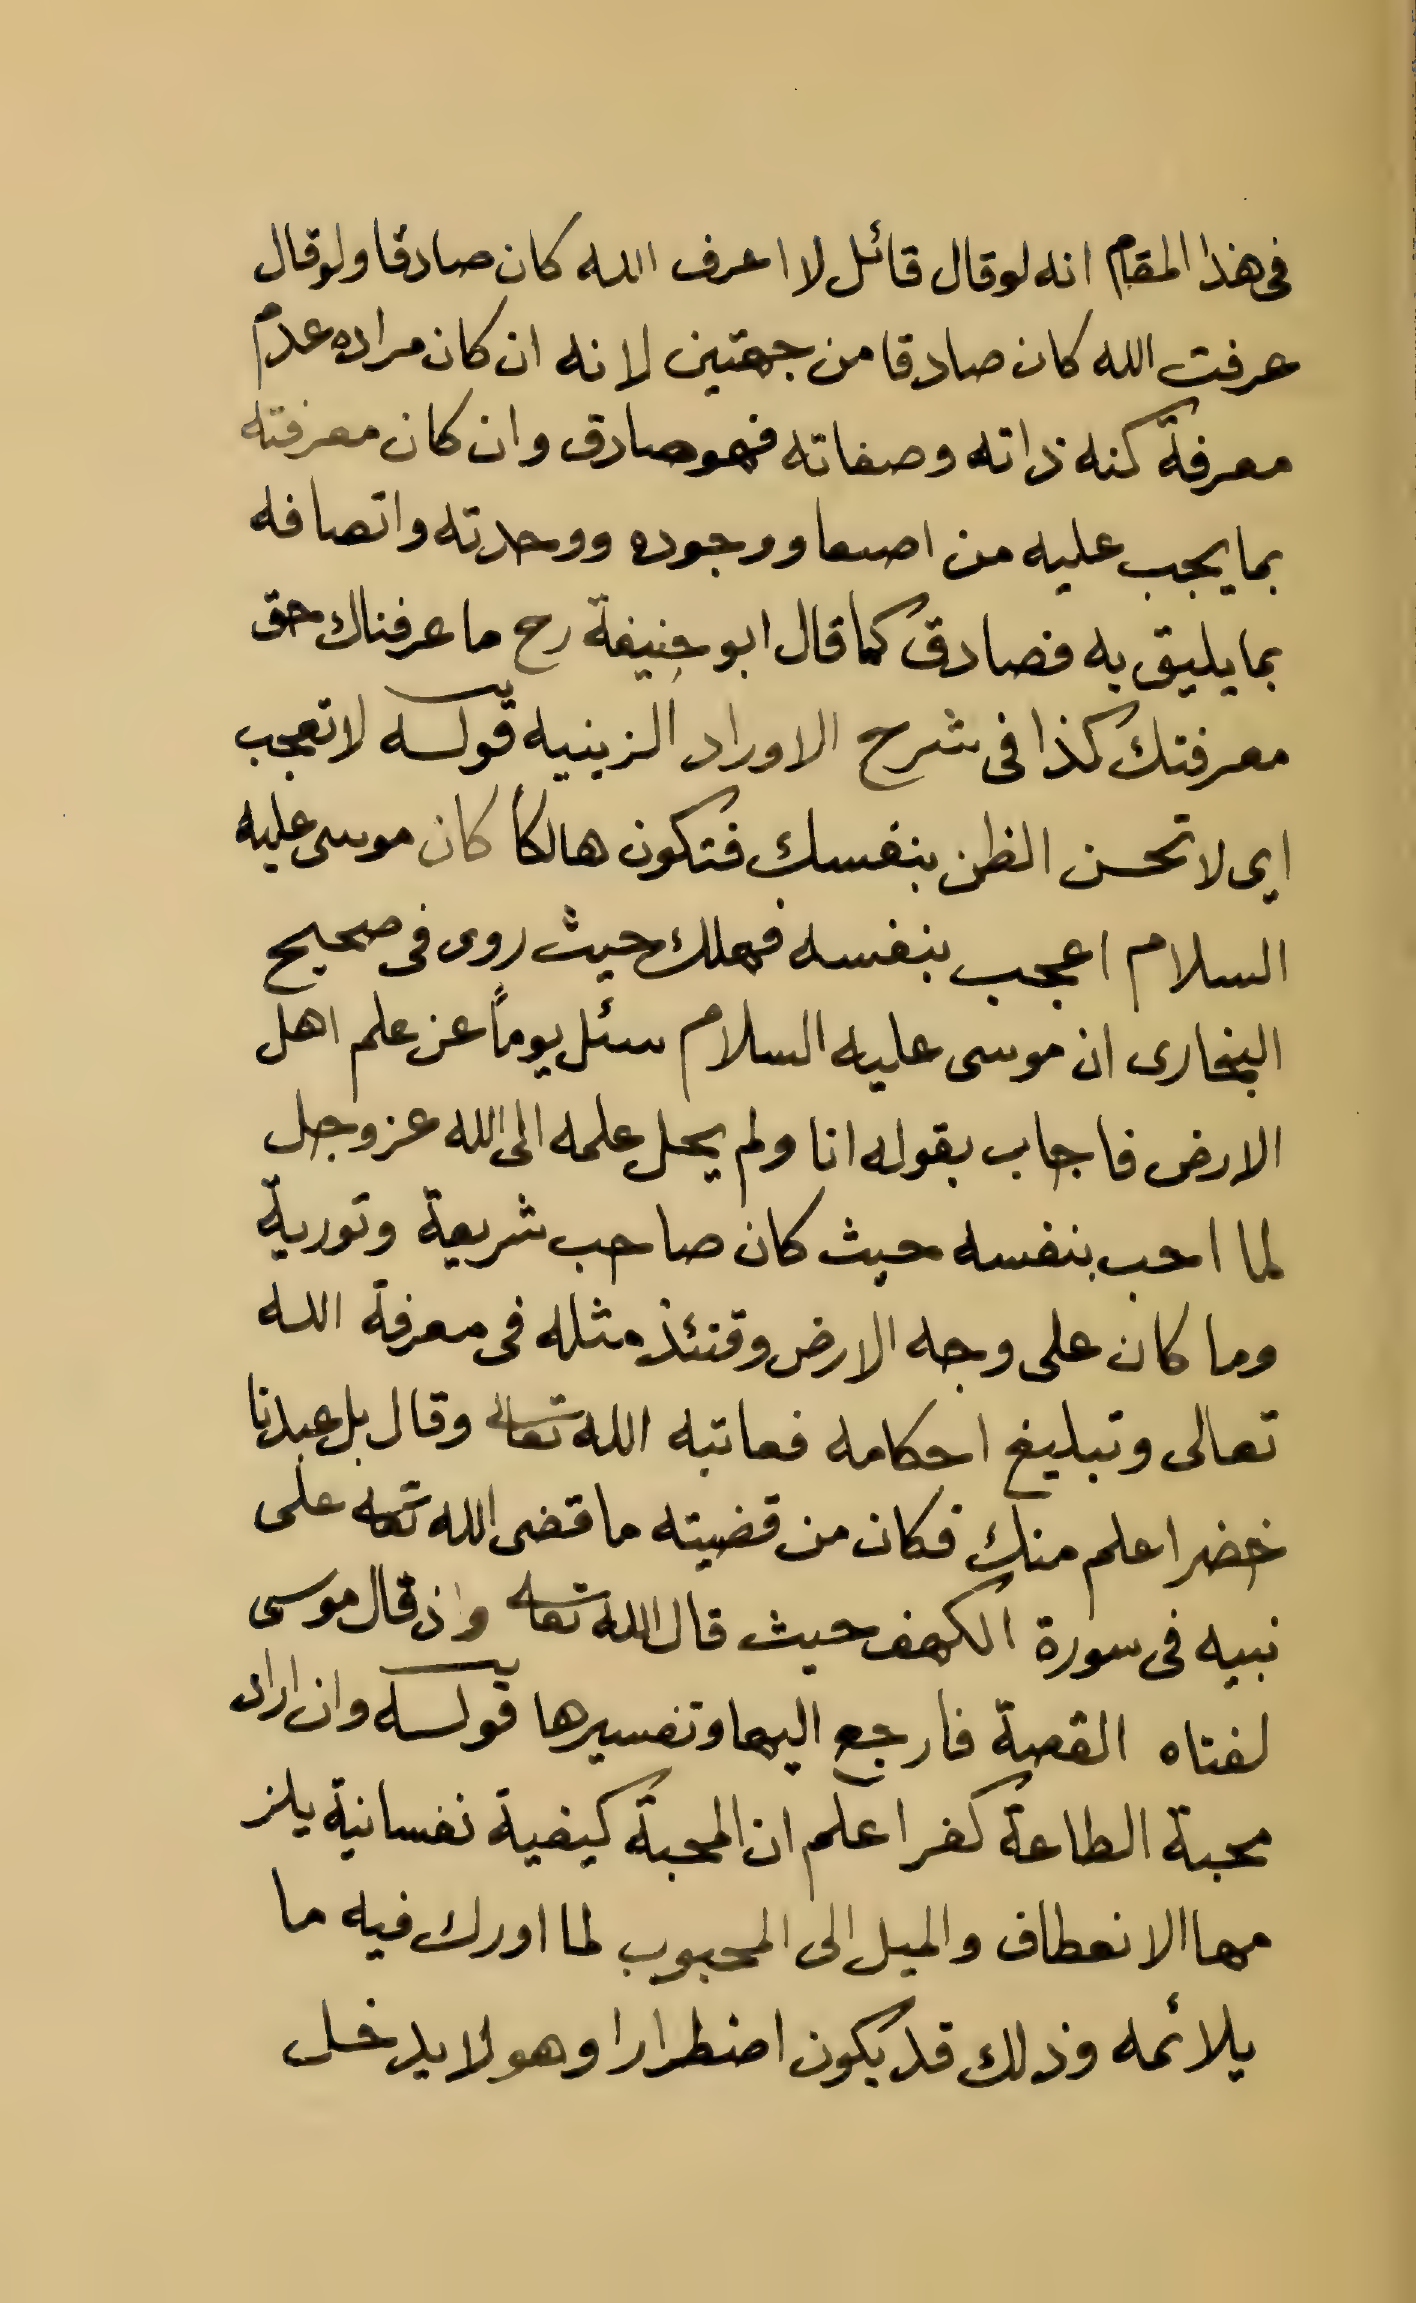 فى هذا المقام انه لو قال قائل لا اعرف الله كان صادقا ولو قال
عرفت الله كان صادقا من جهتين لانه ان كان مراده عدم
معرفة كنه ذاته وصفاته فهو صادق وان كان معرفته
بما يجب عليه من ووجوده ووحدته واتصافه
بما يليق به فصادق كما قال ابو حنيفة رح ما عرفناك حق
معرفتك كذا فى شرح الاوراد الزينيه قوله لا تعجب
اى لا تحسن الظن بنفسك فتكون هالكا كان موسى عليه
السلام اعجب بنفسه فهلك حيث روى فى صحيح
البخارى ان موسى عليه السلام سئل يوماً عن علم اهل
الارض فاجاب بقوله انا ولم يحل علمه الى الله عز وجل
لما احب بنفسه حيث كان صاحب شريعة وتورية
وما كان على وجه الارض وقتئذ مثله فى معرفة الله
تعالى وتبليغ احكامه فعاتبه الله تعالى وقال بل عبدنا
خضر اعلم منك فكان من قضيته ما قضى الله تعه على
نبيه فى سورة الكهف حيث قال الله تعا واذ قال موسى
لفتاه القصة فارجع اليها وتفسيرها قوله وان اراد
محبة الطاعة كفر اعلم ان المحبة كيفية نفسانية يلز
مها الانعطاف والميل الى المحبوب لما اورك فيه ما
يلائمه وذلك قد يكون اضطرارا وهو لا يدخل